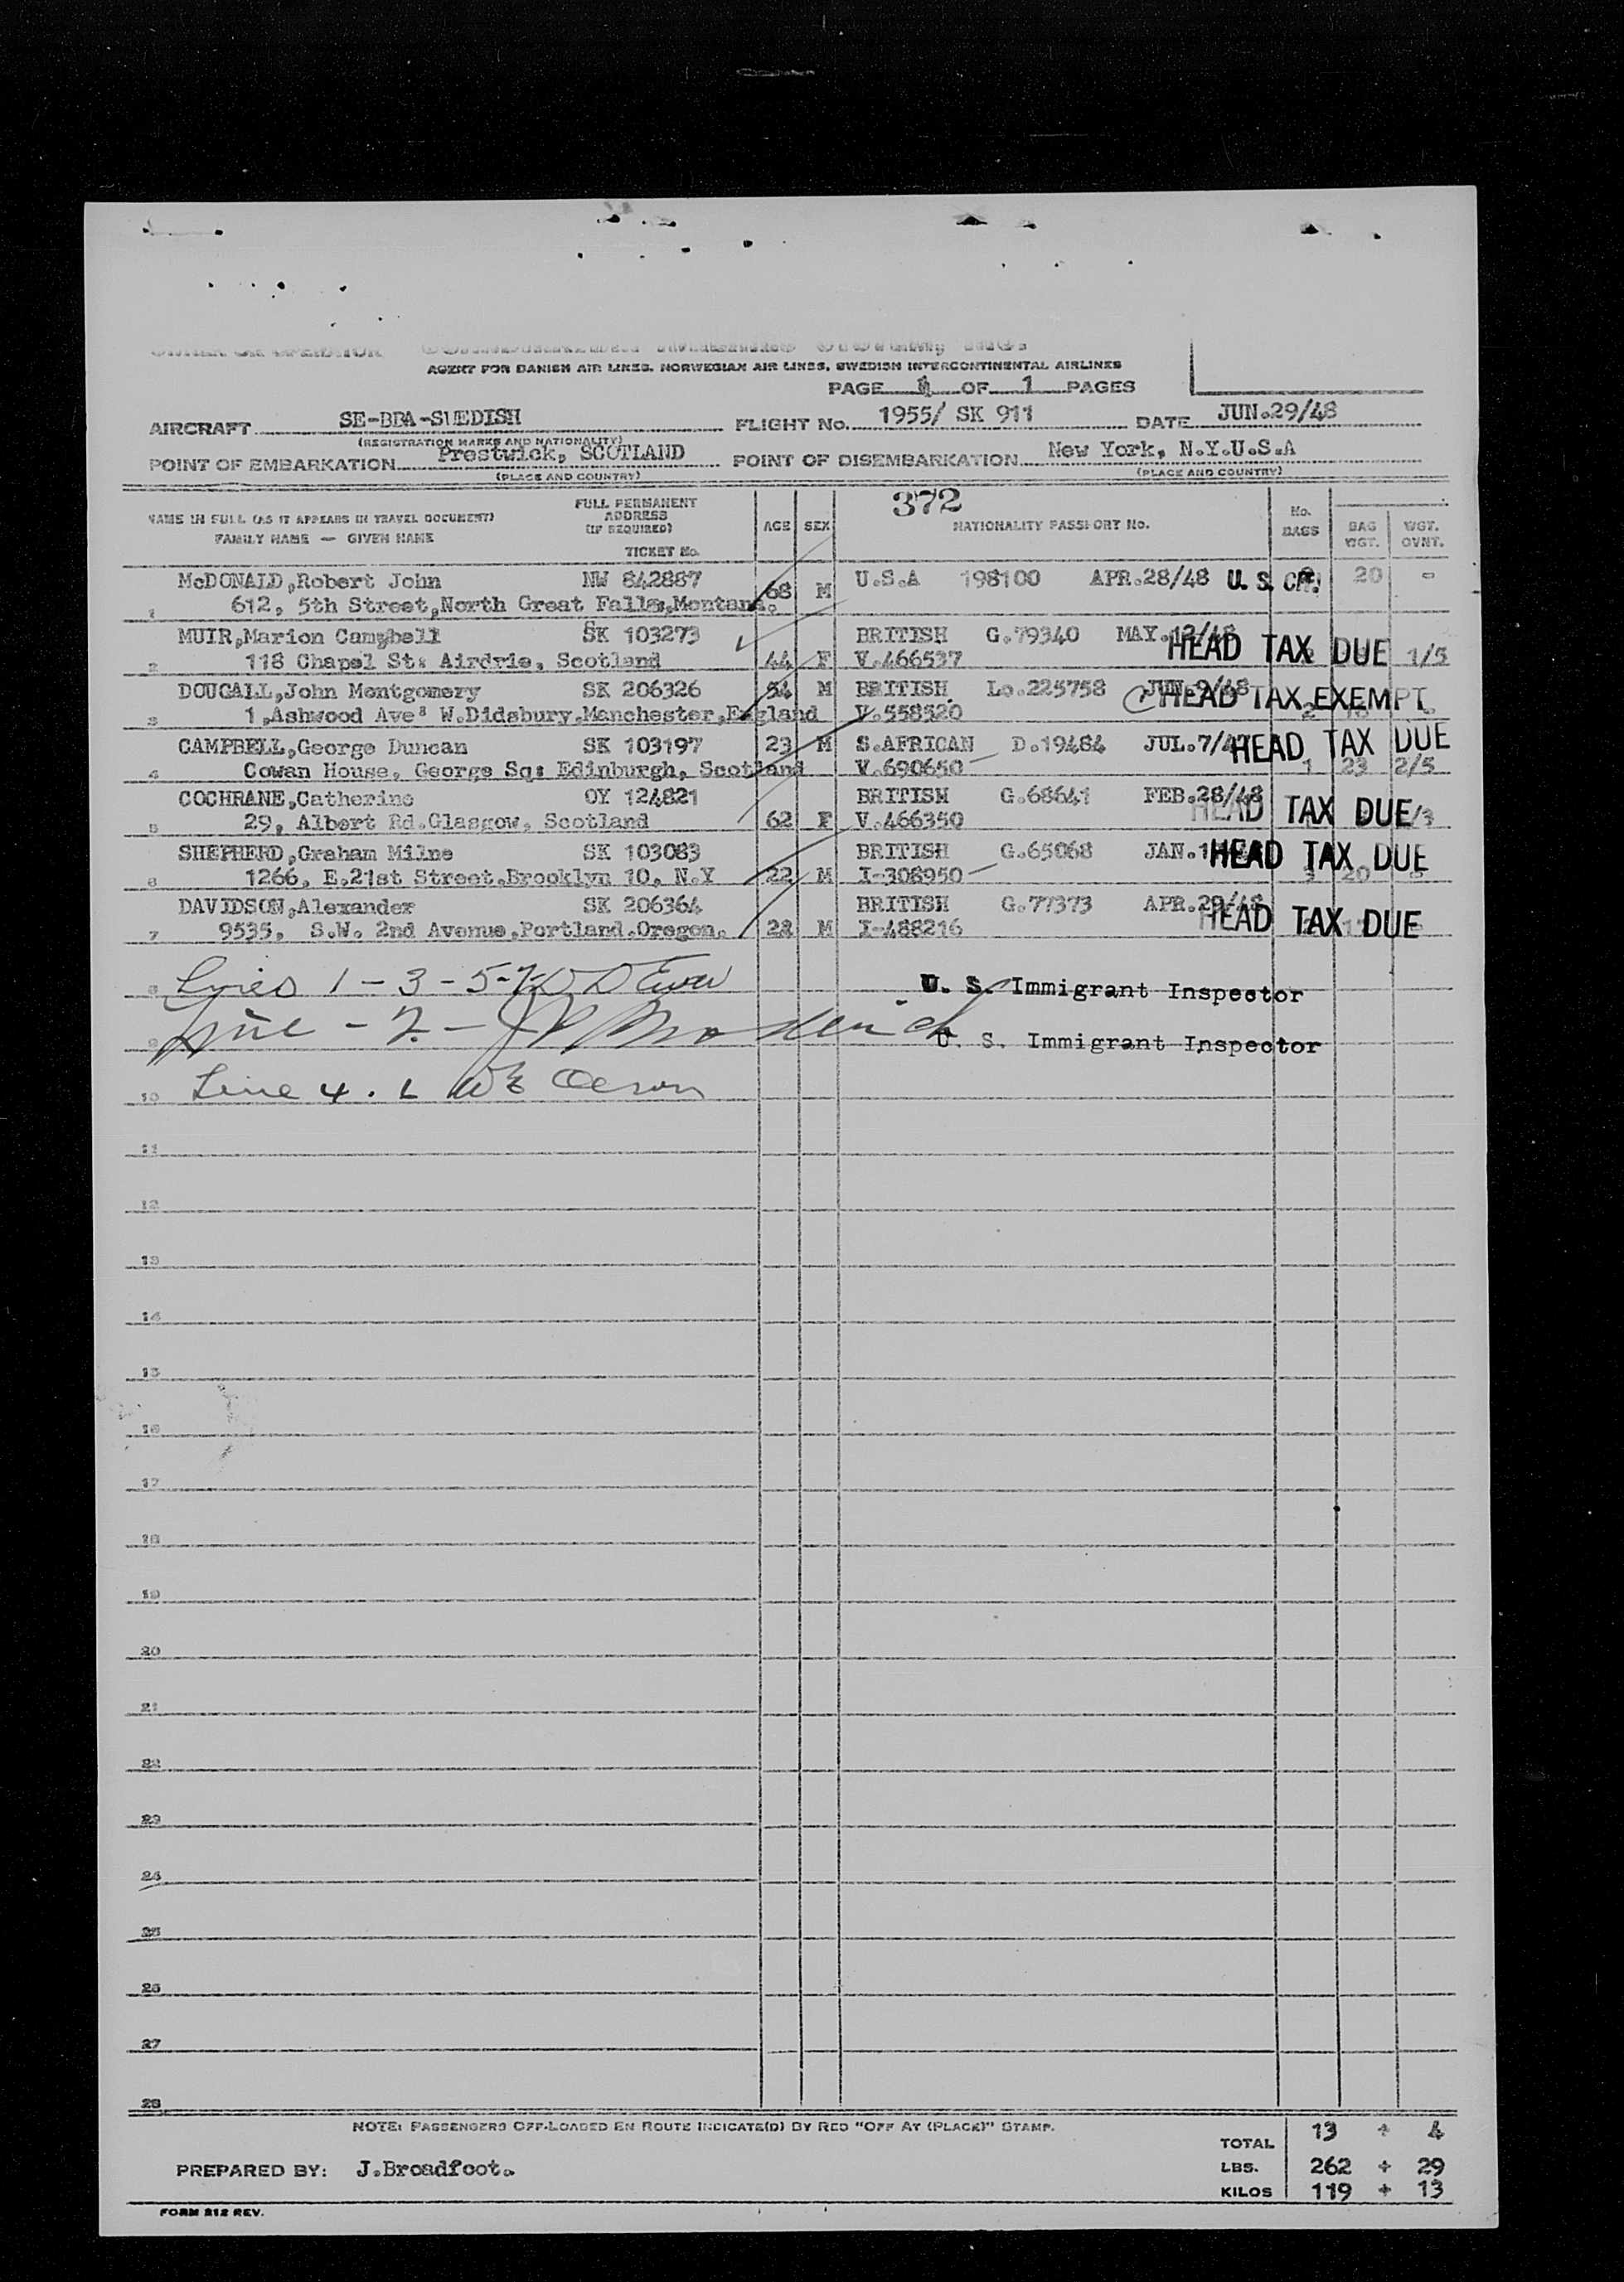 OWNER OR OPERATOR
AGENT FOR DANISH AIR LINES, NORWEGIAN AIR LINES, SWEDISH INTERCONTINENTAL AIRLINES
PAGE 1 OF 1 PAGES
AIRCRAFT SE-BBA-SWEDISH FLIGHT No. 1955/ SK 911 DATE JUN.29/48
(REGISTRATION MARKS AND NATIONALITY)
POINT OF EMBARKATION Prestwick, SCOTLAND POINT OF DISEMBARKATION New York, N.Y.U.S.A
(PLACE AND COUNTRY) (PLACE AND COUNTRY)
372
NAME IN FULL (AS IT APPEARS IN TRAVEL DOCUMENT) FAMILY NAME — GIVEN NAME FULL PERMANENT ADDRESS (IF REQUIRED) TICKET No. AGE SEX NATIONALITY PASSPORT No. No. BAGS BAG WGT. WGT. OVNT.
McDONALD,Robert John NW 642887 U.S.A 198100 APR.28/48 U. S. CIT. 20 -
1 612, 5th Street,North Great Falls,Montana. 68 M
MUIR,Marion Campbell SK 103273 BRITISH G.79340 MAY.12/48 HEAD TAX DUE
2 118 Chapel St: Airdrie, Scotland 44 F V.466537 1/5
DOUGALL,John Montgomery SK 206326 54 M BRITISH Lo.225758 JUN.9/48 HEAD TAX EXEMPT
3 1,Ashwood Ave: W.Didsbury.Manchester,England V.558520 2
CAMPBELL,George Duncan SK 103197 23 M S.AFRICAN D.19484 JUL.7/47 HEAD TAX DUE
4 Cowan House, George Sq: Edinburgh, Scotland V.690650 1 23 2/5
COCHRANE,Catherine OY 124821 BRITISH G.68641 FEB.28/48 HEAD TAX DUE
5 29, Albert Rd.Glasgow, Scotland 62 F V.466350 /3
SHEPHERD,Graham Milne SK 103083 BRITISH G.65068 JAN. HEAD TAX DUE
6 1266, E.21st Street.Brooklyn 10, N.Y 22 M I-308950 20
DAVIDSON,Alexander SK 206364 BRITISH G.77373 APR.29/48 HEAD TAX DUE
7 9535, S.W. 2nd Avenue,Portland.Oregon. 28 M I-488216
8 Lines 1 - 3 - 5-7- U. S. Immigrant Inspector
9 Line - 2 - U. S. Immigrant Inspector
10 Line 4.
11
12
13
14
15
16
17
18
19
20
21
22
23
24
25
26
27
28
NOTE: PASSENGERS OFF-LOADED EN ROUTE INDICATE(D) BY RED "OFF AT (PLACE)" STAMP.
TOTAL 13 + 4
PREPARED BY: J.Broadfoot. LBS. 262 + 29
KILOS 119 + 13
FORM 212 REV.